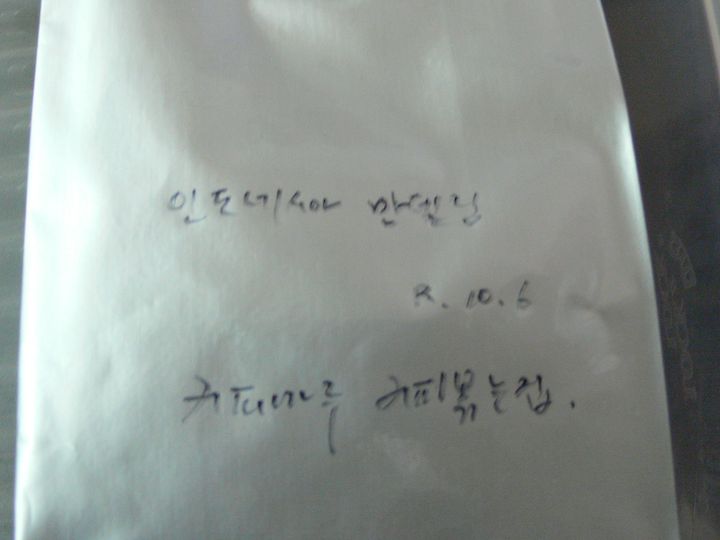 인도네시아 만델링
R. 10. 6
커피나루 커피볶는집.